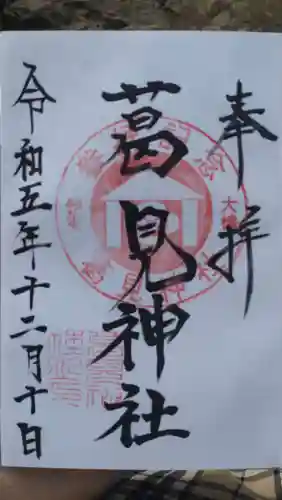 奉拝
葛見神社
令和五年十二月十日